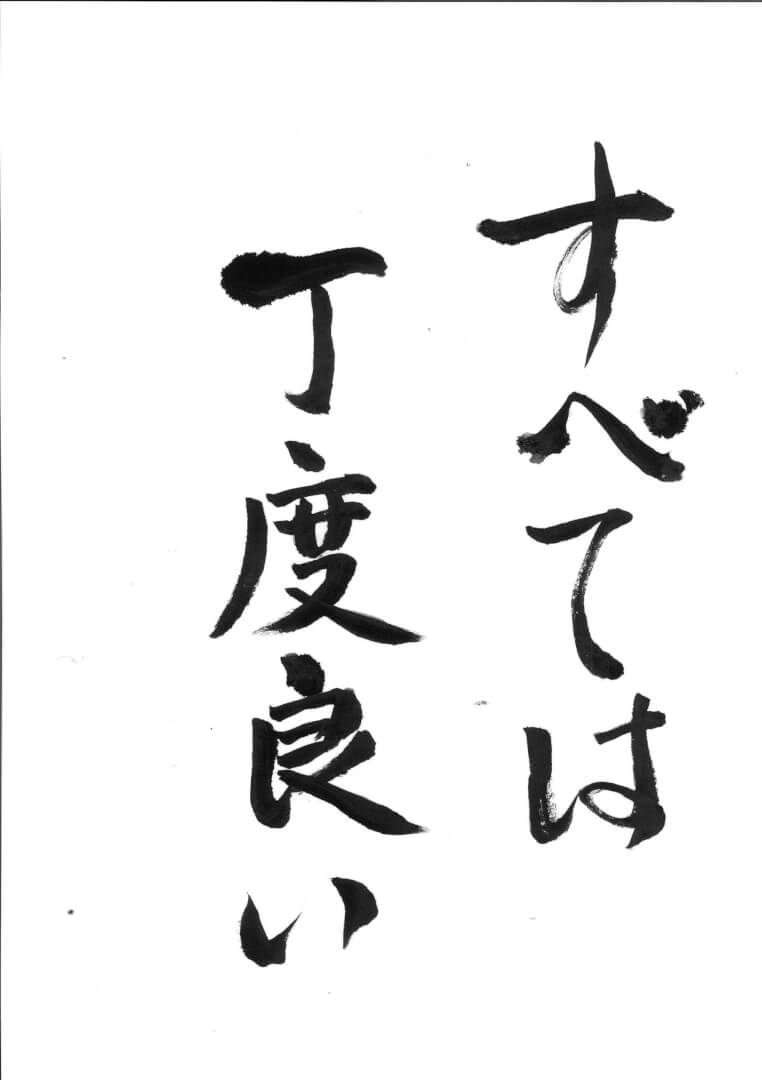 すべては
丁度良い